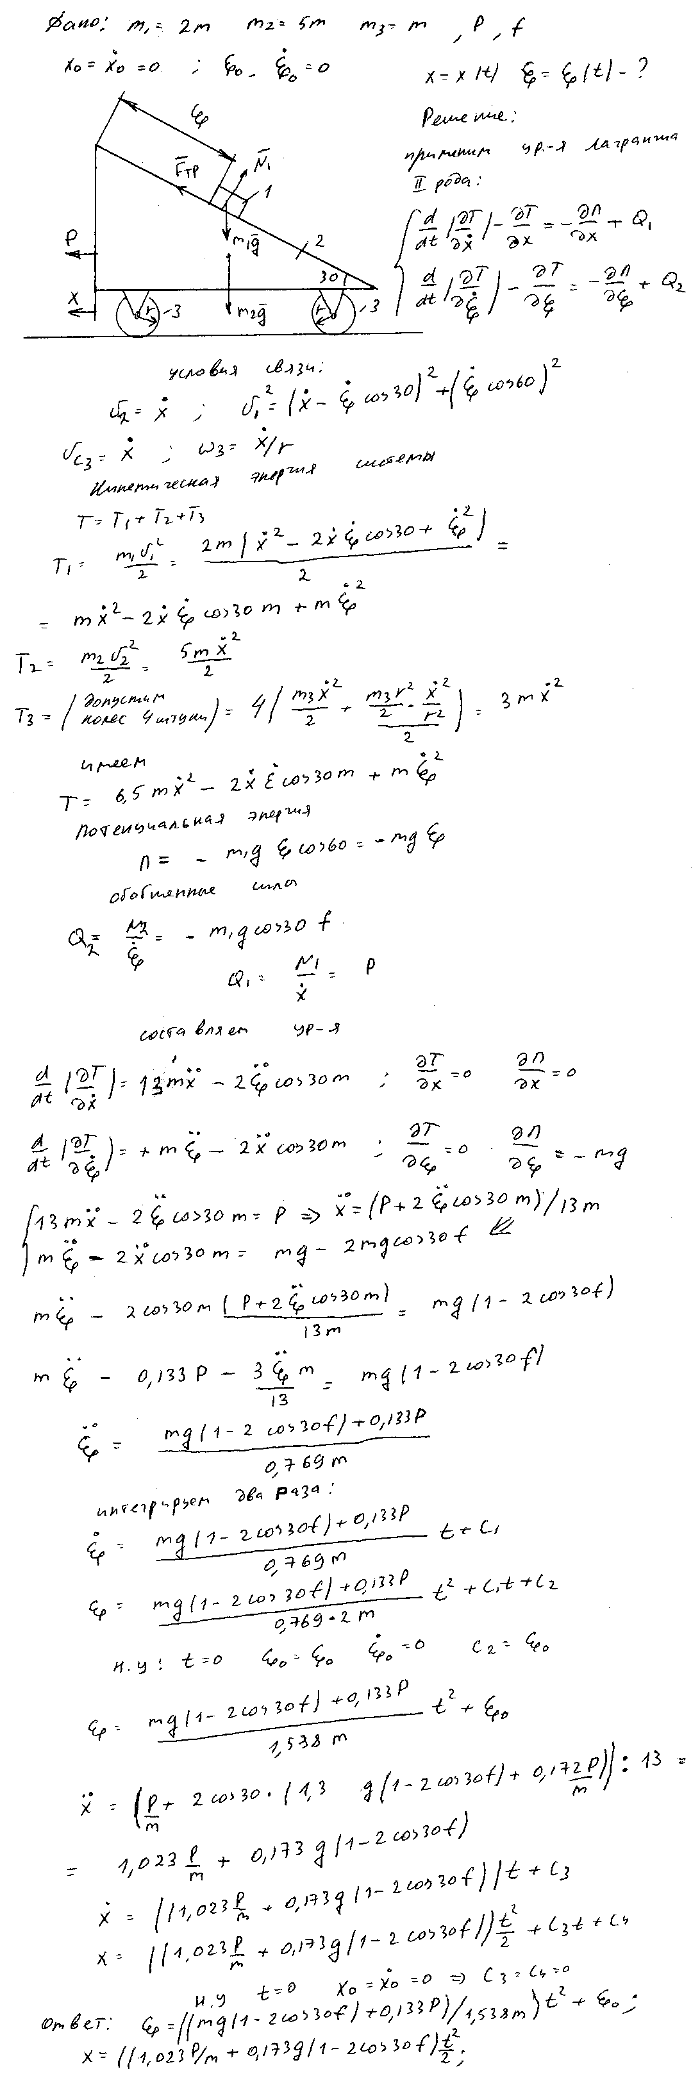 Дано: m₁ = 2m m₂ = 5m m₃ = m , P, f
x₀ = ẋ₀ = 0 ; ξ₀, ξ̇₀ = 0 x = x(t) ξ = ξ(t) - ?
Решение:
применим ур-я Лагранжа
II рода:
{ d/dt (∂T/∂ẋ) - ∂T/∂x = -∂П/∂x + Q₁
{ d/dt (∂T/∂ξ̇) - ∂T/∂ξ = -∂П/∂ξ + Q₂
ξ
F̅тр N̅₁
1
P m₁g̅ 2
30
X r -3 m₂g̅ r -3
условия связи:
v₂ = ẋ ; v₁² = (ẋ - ξ̇ cos30)² + (ξ̇ cos60)²
vC₃ = ẋ ; ω₃ = ẋ/r
Кинетическая энергия системы
T = T₁ + T₂ + T₃
T₁ = m₁v₁²/2 = 2m(ẋ² - 2ẋξ̇ cos30 + ξ̇²)/2 =
= mẋ² - 2ẋξ̇ cos30 m + mξ̇²
T₂ = m₂v₂²/2 = 5mẋ²/2
T₃ = (допустим колес 4 штуки) = 4(m₃ẋ²/2 + (m₃r²/2 · ẋ²/r²)/2) = 3mẋ²
имеем
T = 6,5mẋ² - 2ẋξ̇ cos30 m + mξ̇²
Потенциальная энергия
П = - m₁g ξ cos60 = - mg ξ
обобщенные силы
Q₂ = N₂/ξ̇ = - m₁g cos30 f
Q₁ = N₁/ẋ = P
составляем ур-я
d/dt (∂T/∂ẋ) = 13mẍ - 2ξ̈ cos30 m ; ∂T/∂x = 0 ∂П/∂x = 0
d/dt (∂T/∂ξ̇) = + mξ̈ - 2ẍ cos30 m ; ∂T/∂ξ = 0 ∂П/∂ξ = - mg
{ 13mẍ - 2ξ̈ cos30 m = P ⇒ ẍ = (P + 2ξ̈ cos30 m)/13m
{ mξ̈ - 2ẍ cos30 m = mg - 2mg cos30 f ⇐
mξ̈ - 2cos30 m (P + 2ξ̈ cos30 m)/13m = mg(1 - 2cos30 f)
mξ̈ - 0,133P - 3ξ̈m/13 = mg(1 - 2cos30 f)
ξ̈ = (mg(1 - 2cos30 f) + 0,133P)/0,769m
интегрируем два раза:
ξ̇ = (mg(1 - 2cos30 f) + 0,133P)/0,769m t + C₁
ξ = (mg(1 - 2cos30 f) + 0,133P)/0,769·2m t² + C₁t + C₂
н.у: t = 0 ξ₀ = ξ₀ ξ̇₀ = 0 C₂ = ξ₀
ξ = (mg(1 - 2cos30 f) + 0,133P)/1,538m t² + ξ₀
ẍ = (P/m + 2cos30·(1,3 g(1 - 2cos30 f) + 0,172P/m)) : 13 =
= 1,023 P/m + 0,173g(1 - 2cos30 f)
ẋ = ((1,023 P/m + 0,173g(1 - 2cos30 f))t + C₃
x = ((1,023 P/m + 0,173g(1 - 2cos30 f)) t²/2 + C₃t + C₄
н.у t = 0 x₀ = ẋ₀ = 0 ⇒ C₃ = C₄ = 0
ответ: ξ = ((mg(1 - 2cos30 f) + 0,133P)/1,538m)t² + ξ₀;
x = ((1,023P/m + 0,173g(1 - 2cos30 f) t²/2;